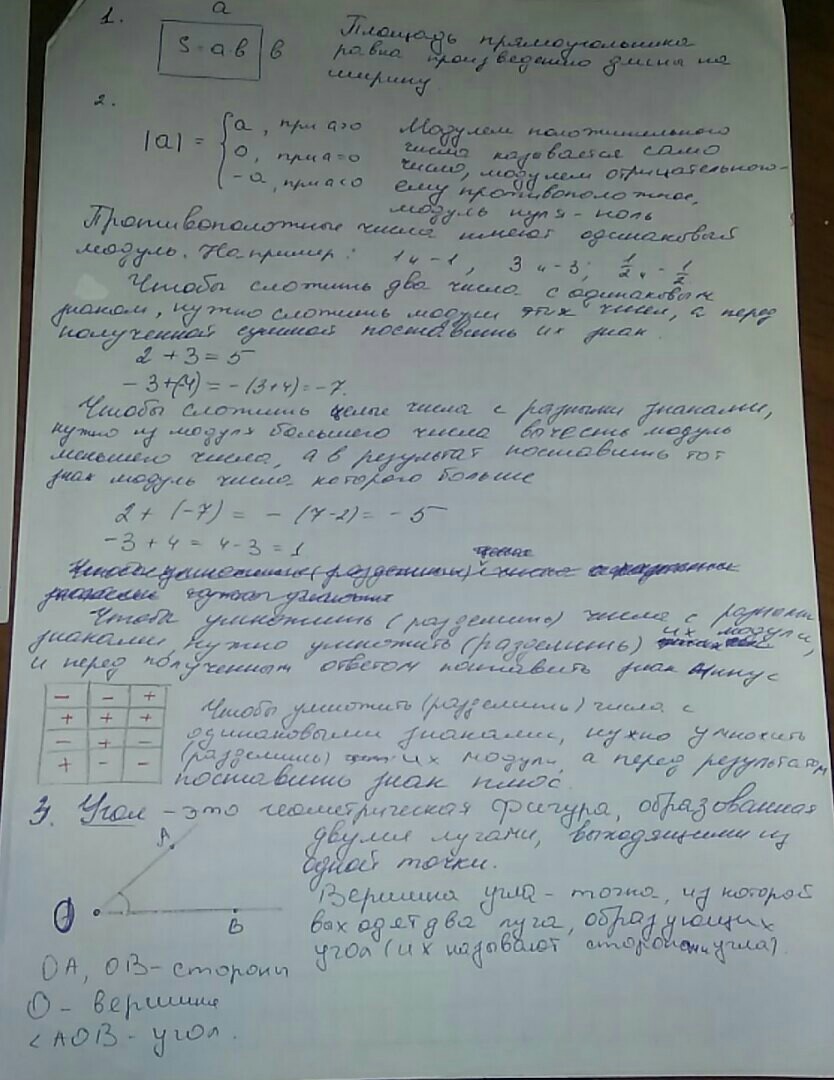 1.
a
S = a·в
в
Площадь прямоугольника
равна произведению длины на
ширину
2.
|a| =
a, при a>0
0, при a=0
-a, при a<0
Модулем положительного
числа называется само
число, модулем отрицательного-
ему противоположное,
модуль нуля - ноль
Противоположные числа имеют одинаковый
модуль. Например: 1 и -1, 3 и -3; 1/2 и -1/2
Чтобы сложить два числа с одинаковым
знаком, нужно сложить модули этих чисел, а перед
полученной суммой поставить их знак.
2 + 3 = 5
-3+(-4) = -(3+4) = -7.
Чтобы сложить целые числа с разными знаками,
нужно из модуля большего числа вычесть модуль
меньшего числа, а в результат поставить тот
знак модуль числа которого больше
2 + (-7) = - (7-2) = - 5
-3 + 4 = 4-3 = 1
Чтобы умножить (разделить) числа с разными
знаками, нужно умножить (разделить) их модули,
и перед полученным ответом поставить знак минус
- - +
+ + +
- + -
+ - -
Чтобы умножить (разделить) числа с
одинаковыми знаками, нужно умножить
(разделить) их модули, а перед результатом
поставить знак плюс.
3. Угол - это геометрическая фигура, образованная
двумя лучами, выходящими из
одной точки.
A
O
B
Вершина угла - точка, из которой
выходят два луча, образующих
угол (их называют сторонами угла).
OA, OB - стороны
O - вершина
<AOB - угол.